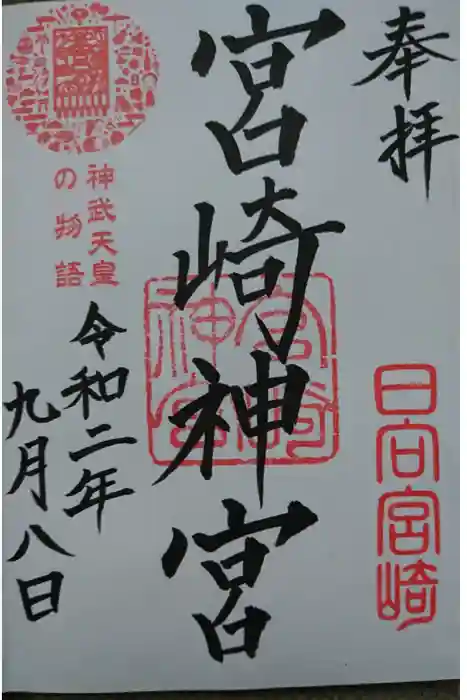 奉拝
日向宮崎
宮崎神宮
宮崎神宮
神武天皇
の物語
令和二年
九月八日